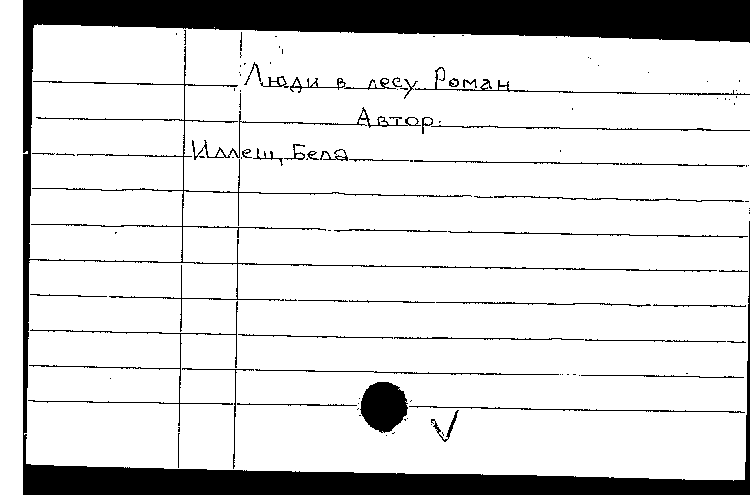 Люди в лесу Роман
Автор:
Иллеш, Бела